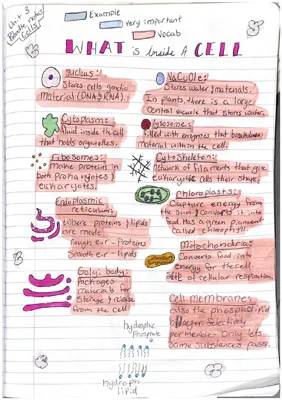 Unit 3
notes
Cells
Example
Very important
Vocab
WHAT is Inside A CELL
Nucleus:
Stores cells genetic
Material (DNA & RNA).
Vacuole:
Stores water & materials.
In plants, there is a large
central vacuole that stores water.
Cytoplasm:
fluid inside the cell
that holds organelles.
Lysosome:
filled with enzymes that breakdown
material within the cell.
Ribosomes:
make proteins in
both Prokaryotes &
eukaryotes.
Cytoskeleton:
Network of filaments that give
eukaryotic cells their shape.
Endoplasmic
reticulum:
Where proteins & lipids
are made
rough er - Proteins
Smooth er - lipids
Chloroplasts:
Capture energy from
the sun & converts it into
food. Has a green pigment
called chlorophyll.
Golgi body:
Packages
materials for
Storage & release
from the cell.
Mitochondria:
Converts food into
energy for the cell.
Site of cellular respiration.
Cell Membrane:
also the phospholipid
bilayer. Selectively
permeable - Only lets
some substances pass.